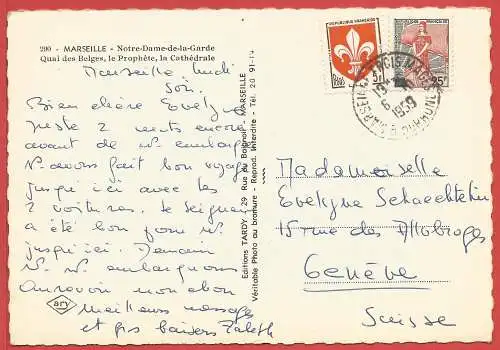 290 - MARSEILLE - Notre-Dame-de-la-Garde
Quai des Belges, le Prophète, la Cathédrale
Marseille lundi
Soir.
Bien chère Evelyne
juste 2 mots encore
avant de n/ embarquer
N/ avons fait bon voyage
jusqu'ici avec les
2 voitures. le Seigneur
a été bon pour n/
jusqu'ici. Demain
n/ n/ embarquons
Au revoir mon
meilleurs messages
et gros baisers
Editions TARDY - 29 Rue du Baignoir - MARSEILLE
Véritable Photo au bromure - Reprod. Interdite - Tél 20 91-14
ary
REPUBLIQUE FRANÇAISE
5f
REPUBLIQUE FRANÇAISE
25F
MARSEILLE
6
1959
Mademoiselle
Evelyne Schaechtelin
15 rue des Allobroges
Genève
Suisse